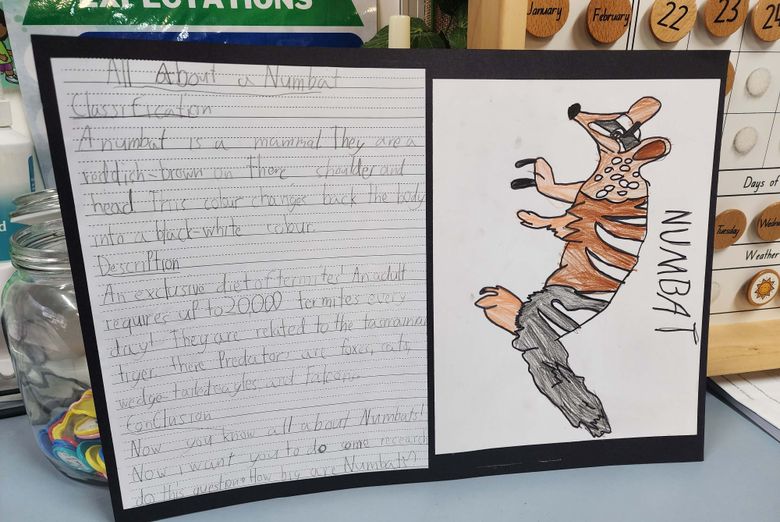 EXPECTATIONS
All About a Numbat
Classification
A numbat is a mammal They are a
reddich-brown on there shoulder and
head This colour changes back the body
into a black-white colour.
Description
An exclusive diet of termites! An adult
requires up to 20,000 termites every
day! They are related to the tasmainian
tiger there Predators are foxes, cats,
wedge-tailed eagles and Falcons
conclusion
Now you know all about Numbats!
Now i want you to do some research
do this question How big are Numbats?
NUMBAT
January
February
22
23
24
Days of
Tuesday
Wedne
Weather